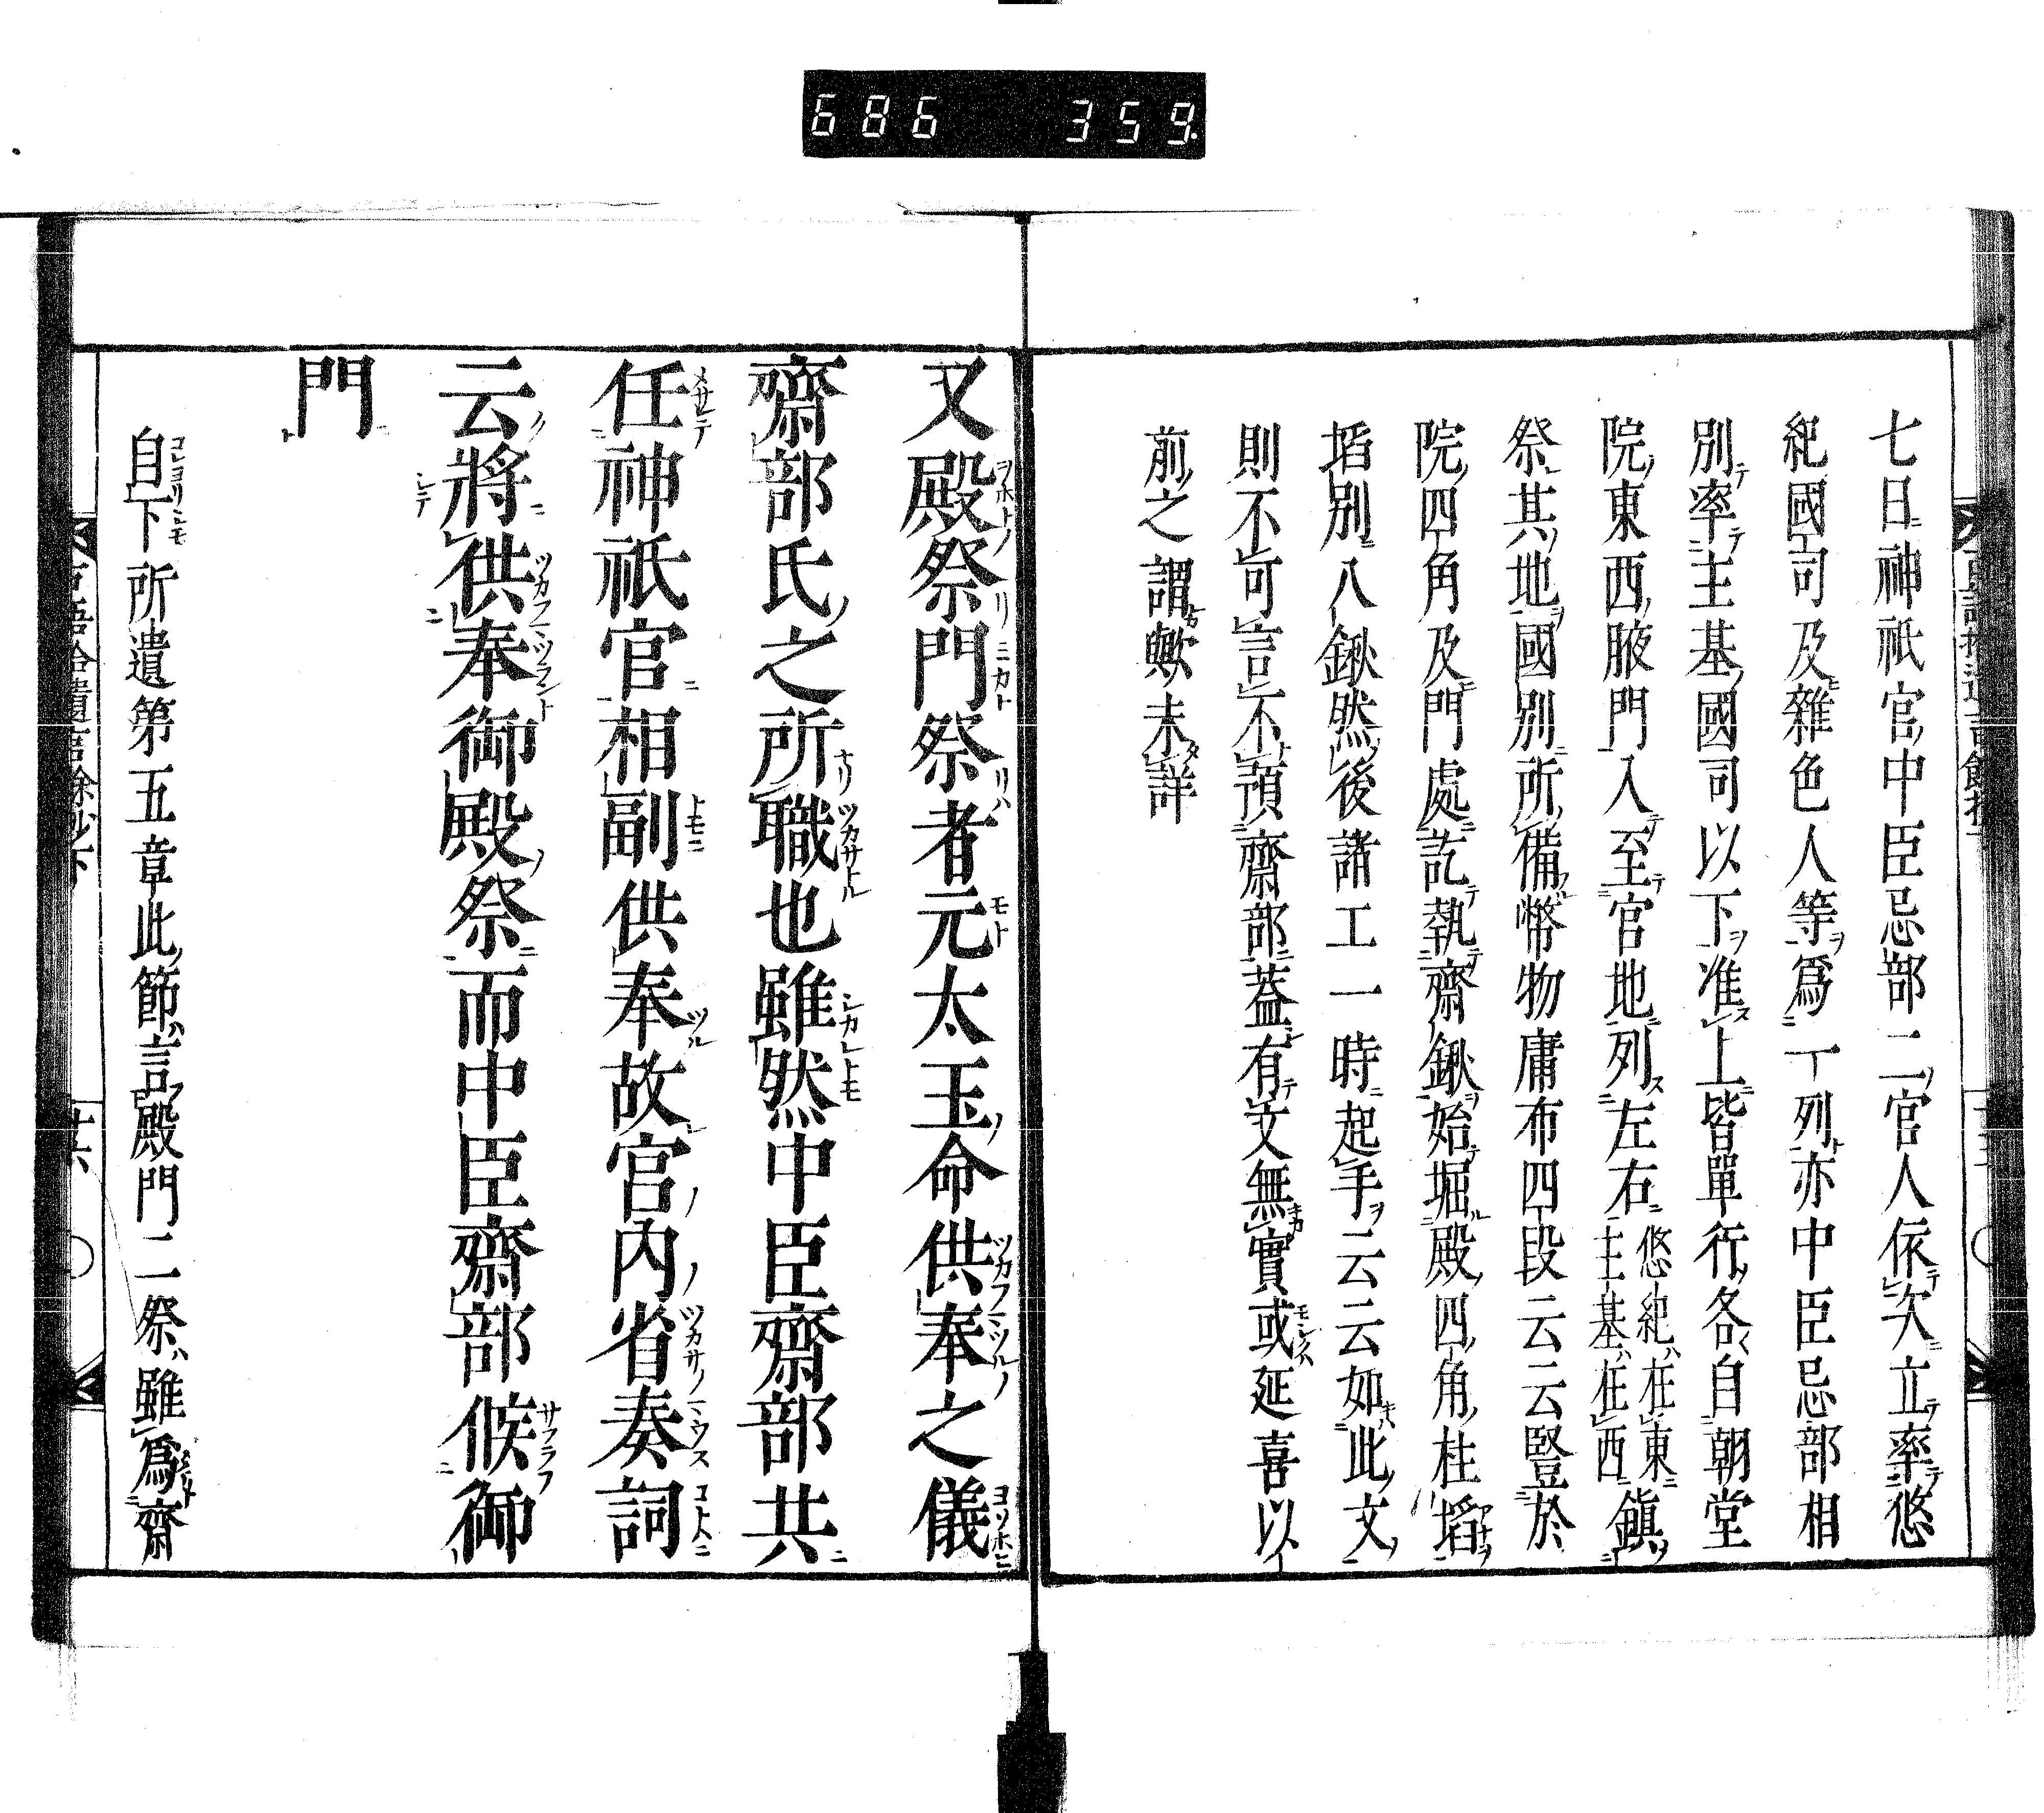 686 359
七日神祇官中臣忌部二官人依次立率悠
紀國司及雜色人等爲一列亦中臣忌部相
別率主基國司以下准上皆單行各自朝堂
院東西腋門入至官地列左右悠紀在東主基在西鎭
祭其地國別所備幣物庸布四段云云豎於
院四角及門處訖執齋鍬始堀殿四角柱
別八鍬然後諸工一時起手云云如此文
則不可言不預齋部蓋有文無實或延喜以
前之謂歟未詳
又殿祭門祭者元太玉命供奉之儀
齋部氏之所職也雖然中臣齋部共
任神祇官相副供奉故宮內省奏詞
云將供奉御殿祭而中臣齋部候御
門
自下所遺第五章此節言殿門二祭雖爲齋
古語拾遺言餘抄下